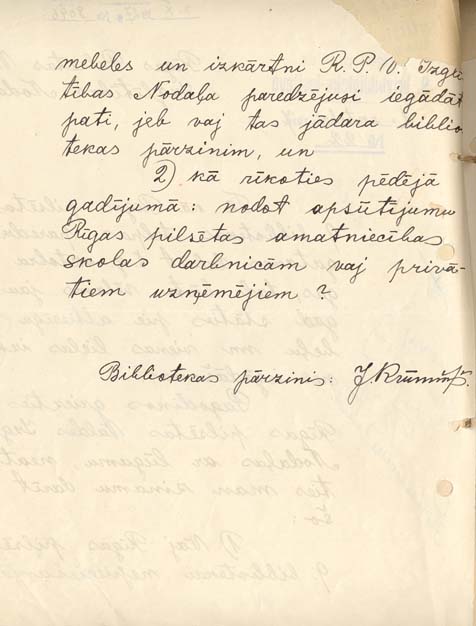 mebeles un izkārtni R.P.V. Izglī
tības Nodaļa paredzējusi iegādāt
pati, jeb vaj tas jādara biblio
tekas pārzinim, un
2) kā rīkoties pēdējā
gadījumā: nodot apsūtījumu
Rīgas pilsētas amatniecības
skolas darbnīcām vaj privā-
tiem uzņēmējiem?
Bibliotekas pārzinis: J. Krūmiņš